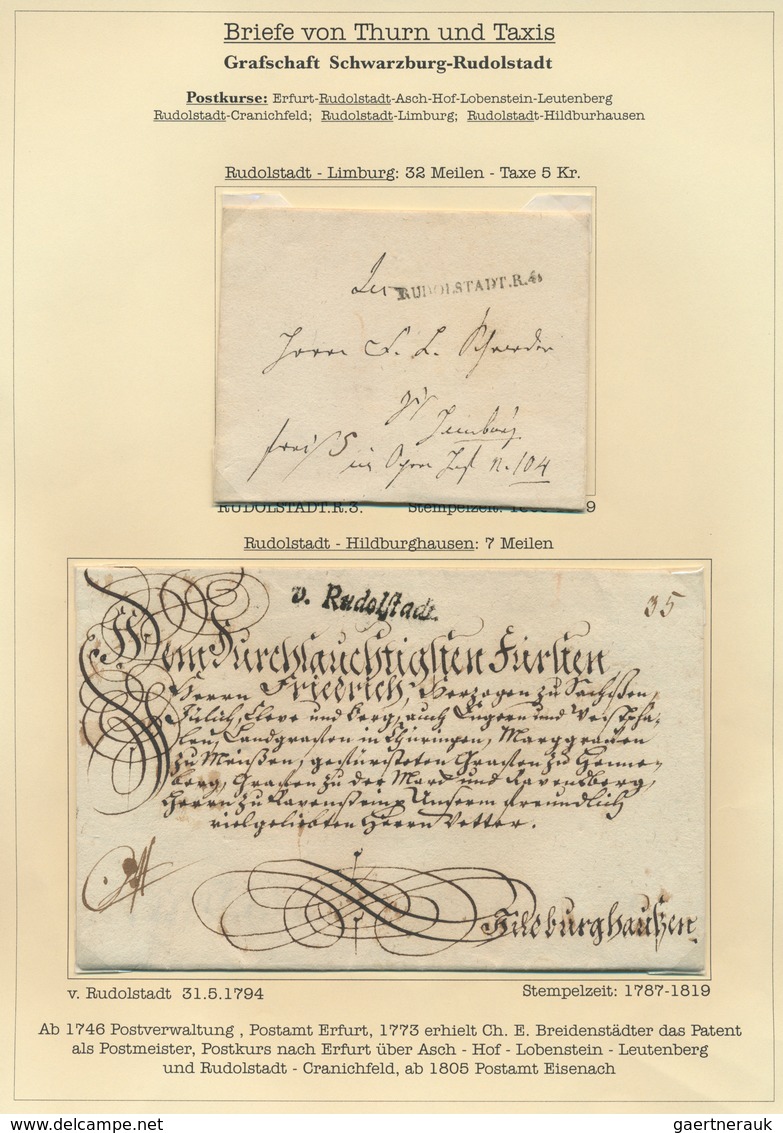 Briefe von Thurn und Taxis
Grafschaft Schwarzburg-Rudolstadt
Postkurse: Erfurt-Rudolstadt-Asch-Hof-Lobenstein-Leutenberg
Rudolstadt-Cranichfeld; Rudolstadt-Limburg; Rudolstadt-Hildburhausen
Rudolstadt - Limburg: 32 Meilen - Taxe 5 Kr.
RUDOLSTADT.R.4.
Herrn F. L.
n. 104
RUDOLSTADT.R.3. Stempelzeit: 9
Rudolstadt - Hildburghausen: 7 Meilen
v. Rudolstadt.
35
Dem Durchlauchtigsten Fürsten
Herrn Friedrich, Herzogen zu Sachßen,
Jülich, Cleve und Berg, auch Engern und Westpha-
len, Landgrafen in Thüringen, Marggraven
zu Meißen, gefürsteten Grafen zu Henne-
berg, Grafen zu der Marck und Ravensberg,
Herrn zu Ravenstein Unserm freundlich
vielgeliebten Herrn Vetter.
Hildburghaußen
v. Rudolstadt 31.5.1794
Stempelzeit: 1787-1819
Ab 1746 Postverwaltung , Postamt Erfurt, 1773 erhielt Ch. E. Breidenstädter das Patent
als Postmeister, Postkurs nach Erfurt über Asch - Hof - Lobenstein - Leutenberg
und Rudolstadt - Cranichfeld, ab 1805 Postamt Eisenach
gaertnerauk